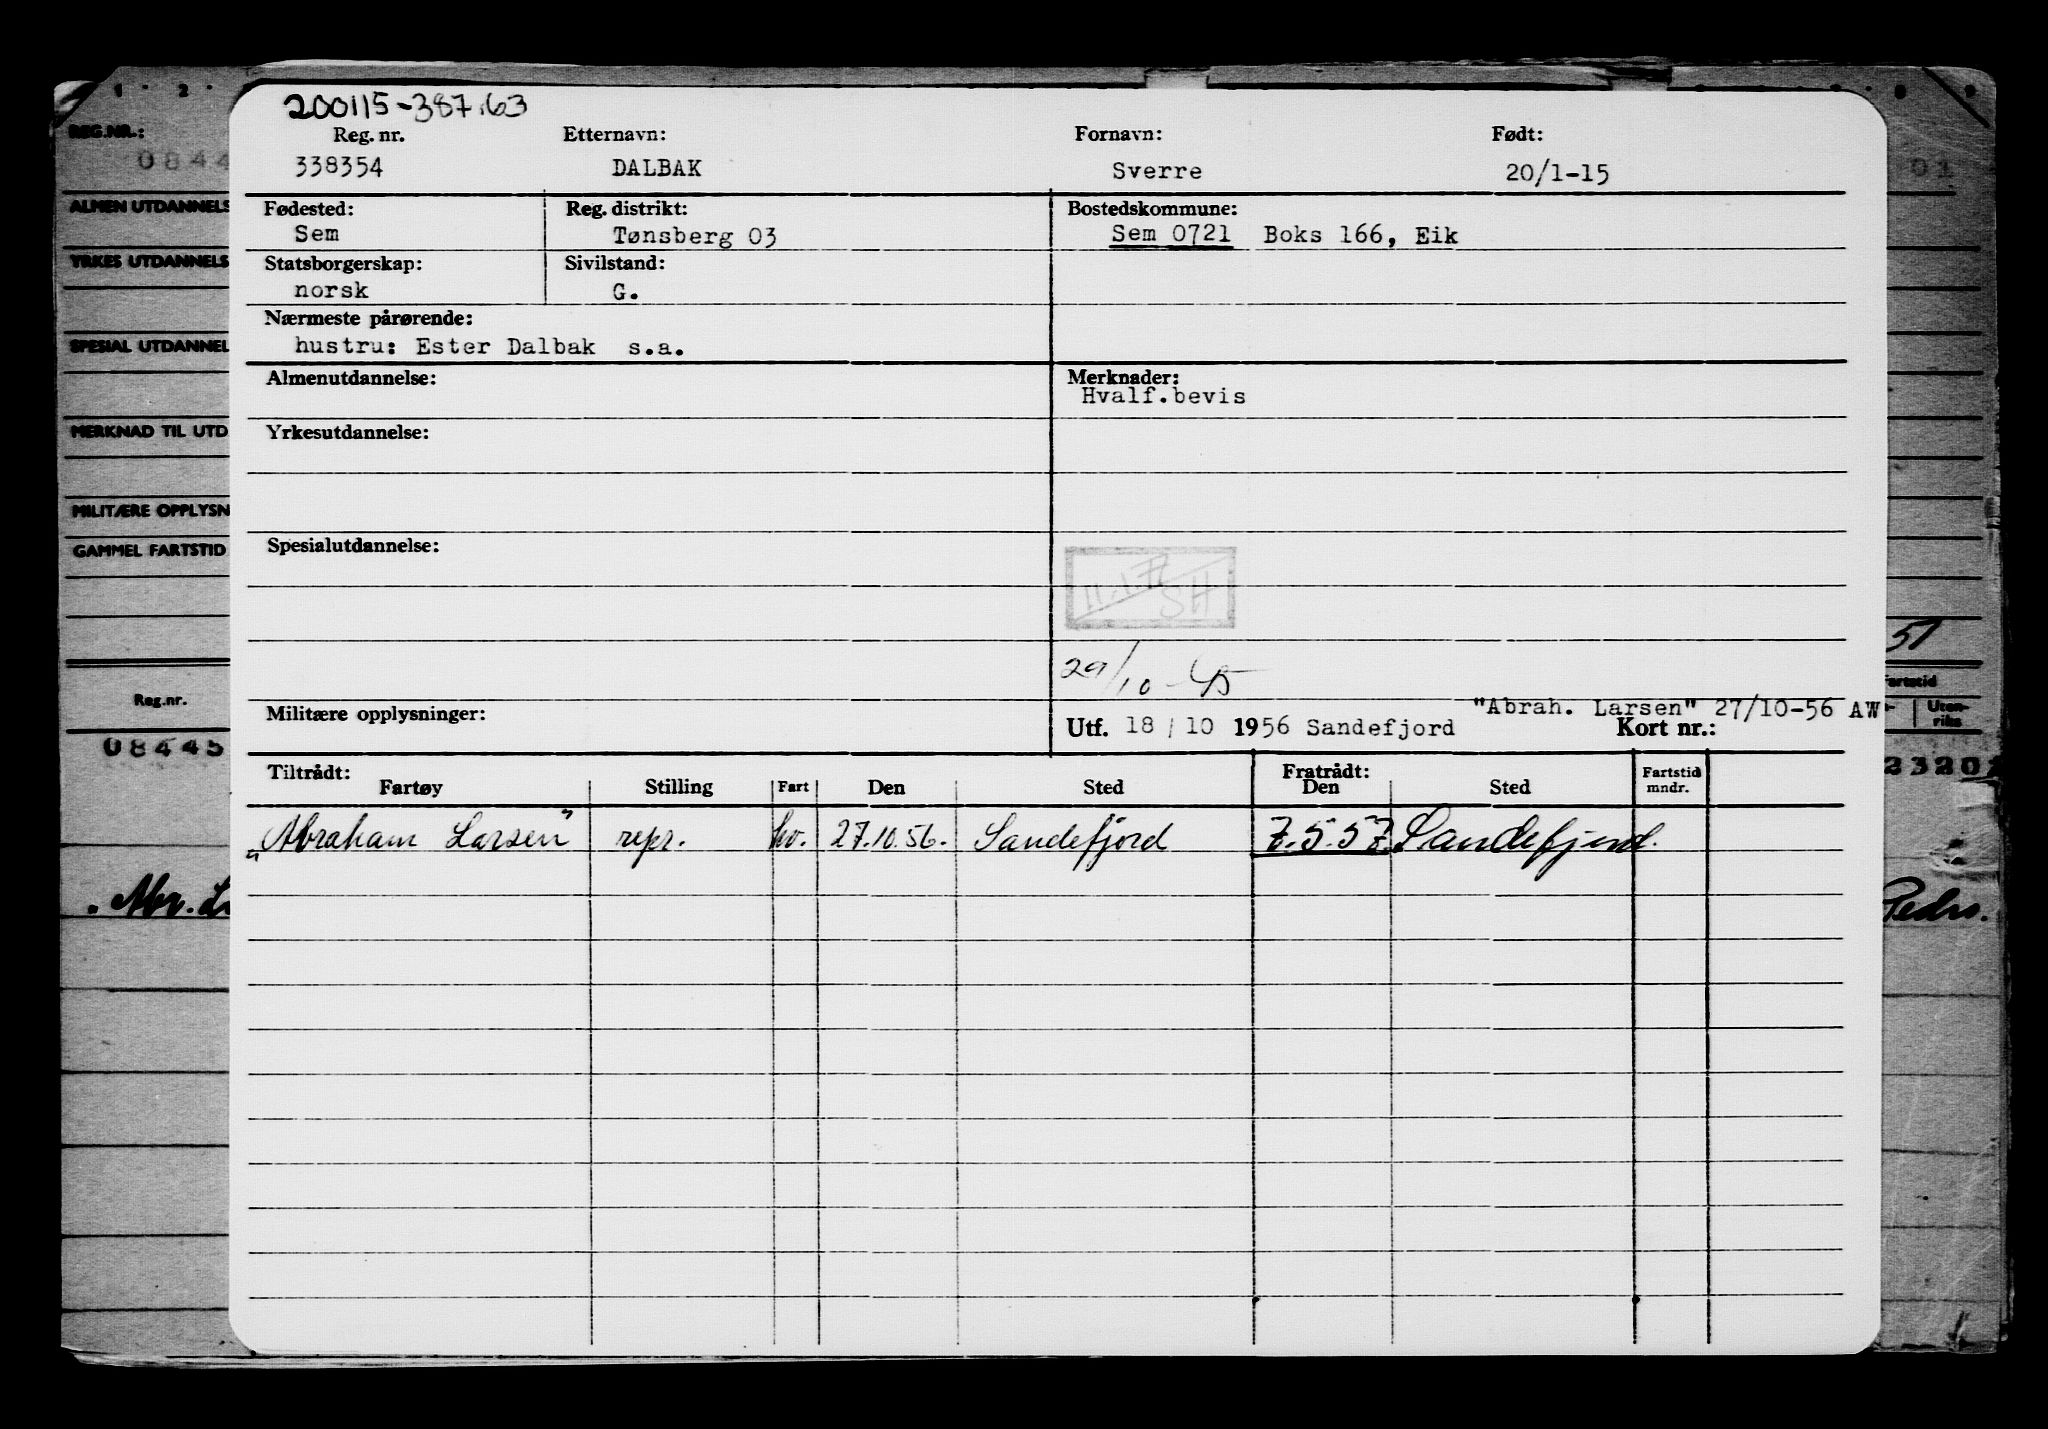 200115-387.63
REG.NR.:
Reg. nr.
Etternavn:
Fornavn:
Født:
0844
338354
DALBAK
Sverre
20/1-15
01
ALMEN UTDANNELS
Fødested:
Reg. distrikt:
Bostedskommune:
Sem
Tønsberg 03
Sem 0721 Boks 166, Eik
YRKES UTDANNELS
Statsborgerskap:
Sivilstand:
norsk
G.
Nærmeste pårørende:
SPESIAL UTDANNEL
hustru: Ester Dalbak s.a.
Almenutdannelse:
Merknader:
Hvalf.bevis
MERKNAD TIL UTD
Yrkesutdannelse:
MILITÆRE OPPLYSN
GAMMEL FARTSTID
Spesialutdannelse:
SH
51
29/10-45
Reg.nr.
Fartstid
Militære opplysninger:
"Abrah. Larsen" 27/10-56 AW
Utf. 18/10 1956 Sandefjord
Kort nr.:
Uten-
riks
08445
2320
Tiltrådt:
Fratrådt:
Fartstid
mndr.
Fartøy
Stilling
Fart
Den
Sted
Den
Sted
„Abraham Larsen” repr. hv. 27.10.56. Sandefjord 7.5.57. Sandefjord.
„Abr. L
Pedro.